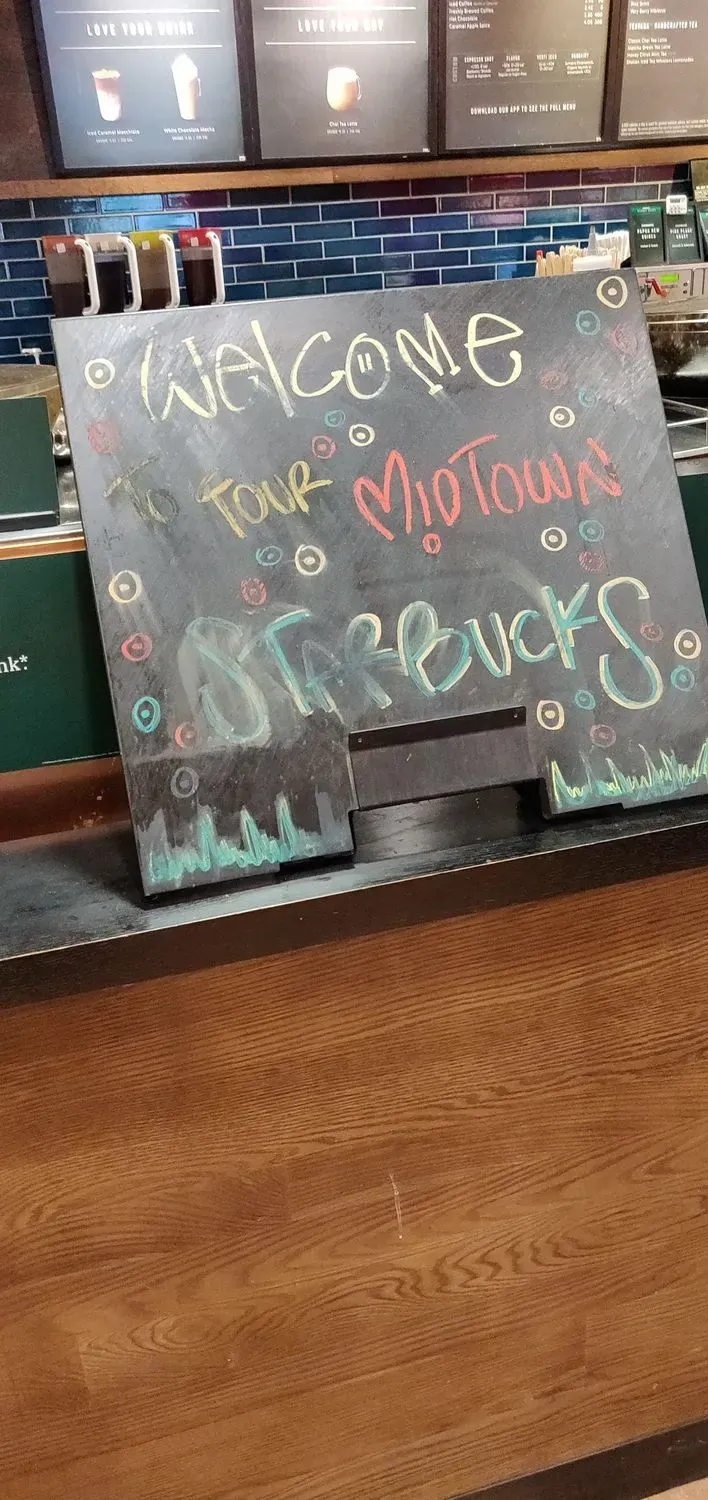 LOVE YOUR DRINK
Iced Caramel Macchiato
White Chocolate Mocha
Chai Tea Latte
Iced Coffee
Freshly Brewed Coffee
Hot Chocolate
Caramel Apple Spice
ESPRESSO SHOT
FLAVOR
CUSTOM
DOWNLOAD OUR APP TO SEE THE FULL MENU
Pink Drink
Very Berry Hibiscus
TEAVANA HANDCRAFTED TEA
Classic Chai Tea Latte
Matcha Green Tea Latte
Honey Citrus Mint Tea
nk*.
WELCOME
TO YOUR MIDTOWN
STARBUCKS